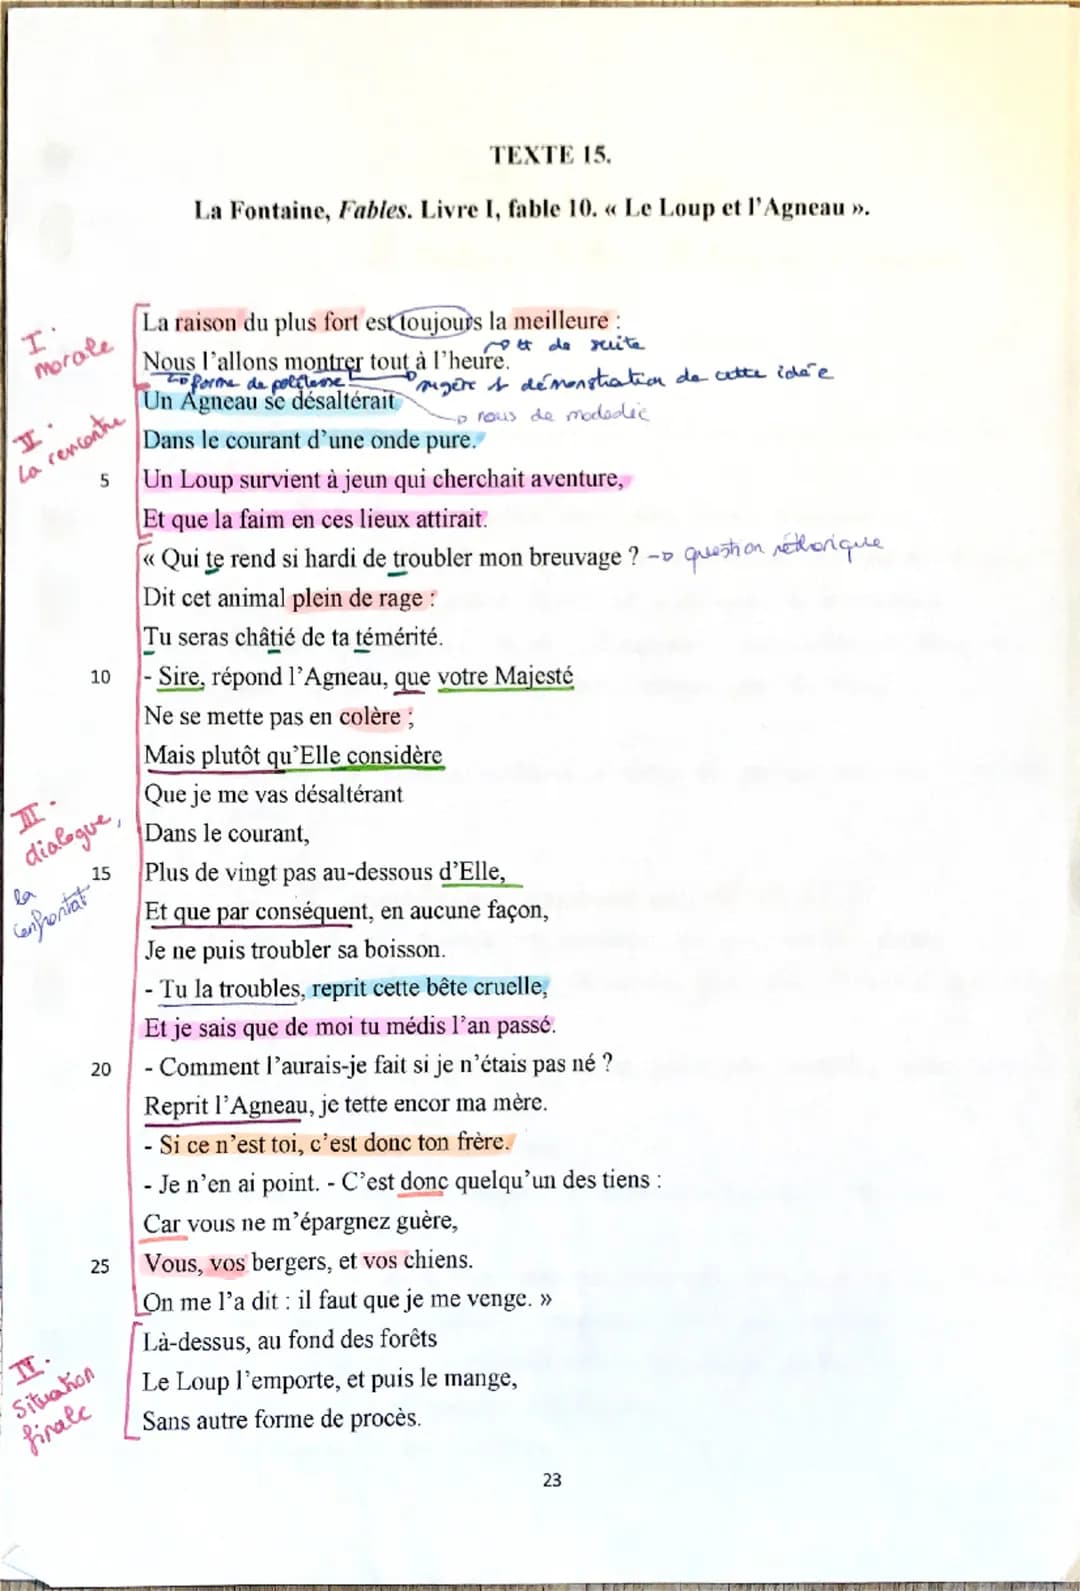 TEXTE 15.
La Fontaine, Fables. Livre I, fable 10. « Le Loup et l'Agneau ».
I.
morale
La raison du plus fort est toujours la meilleure :
de suite
Nous l'allons montrer tout à l'heure.
forme de politesse
démonstration de cette idée
Un Agneau se désaltérait
nous de modestie
II.
La rencontre
Dans le courant d'une onde pure.
5 Un Loup survient à jeun qui cherchait aventure,
Et que la faim en ces lieux attirait.
« Qui te rend si hardi de troubler mon breuvage ? → question réthorique
Dit cet animal plein de rage :
Tu seras châtié de ta témérité.
10 - Sire, répond l'Agneau, que votre Majesté
Ne se mette pas en colère ;
Mais plutôt qu'Elle considère
Que je me vas désaltérant
III.
dialogue,
la
confrontat°
Dans le courant,
15 Plus de vingt pas au-dessous d'Elle,
Et que par conséquent, en aucune façon,
Je ne puis troubler sa boisson.
- Tu la troubles, reprit cette bête cruelle,
Et je sais que de moi tu médis l'an passé.
20 - Comment l'aurais-je fait si je n'étais pas né ?
Reprit l'Agneau, je tette encor ma mère.
- Si ce n'est toi, c'est donc ton frère.
- Je n'en ai point. - C'est donc quelqu'un des tiens :
Car vous ne m'épargnez guère,
25 Vous, vos bergers, et vos chiens.
On me l'a dit : il faut que je me venge. »
IV.
situation
finale
Là-dessus, au fond des forêts
Le Loup l'emporte, et puis le mange,
Sans autre forme de procès.
23